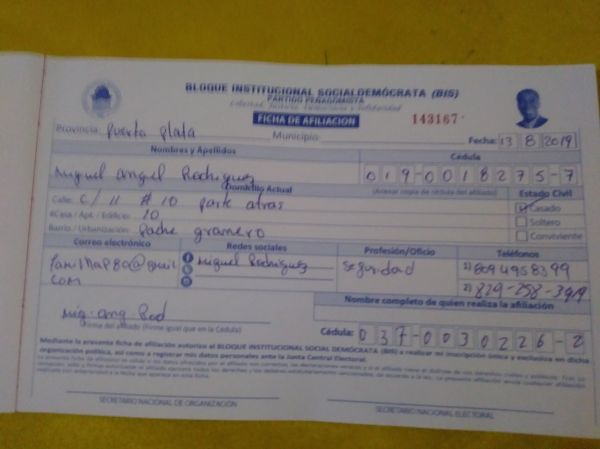 BLOQUE INSTITUCIONAL SOCIALDEMÓCRATA (BIS)
PARTIDO PEÑAGOMISTA
Libertad, Justicia, Democracia y Solidaridad
FICHA DE AFILIACION 143167
Provincia: Puerta Plata Municipio: Fecha: 13 8 2019
Nombres y Apellidos Cédula
Miguel angel Rodriguez 019-0018275-7
Domicilio Actual (Anexar copia de cédula del afiliado) Estado Civil
Calle: C/ 11 # 10 parte atras Casado
#Casa / Apt. / Edificio: 10 Soltero
Barrio / Urbanización: Padre granero Conviviente
Correo electrónico Redes sociales Profesión/Oficio Teléfonos
@gmail Miguel Rodriguez Seguridad 1) 809 495 8399
com 2) 829-258-3919
Nombre completo de quien realiza la afiliación
Mig. ang Rod
Firma del afiliado (Firme igual que en la Cédula) Cédula: 037-0030226-2
Mediante la presente ficha de afiliación autorizo al BLOQUE INSTITUCIONAL SOCIAL DEMÓCRATA (BIS) a realizar mi inscripción única y exclusiva en dicha
organización política, así como a registrar mis datos personales ante la Junta Central Electoral.
SECRETARIO NACIONAL DE ORGANIZACIÓN SECRETARIO NACIONAL ELECTORAL